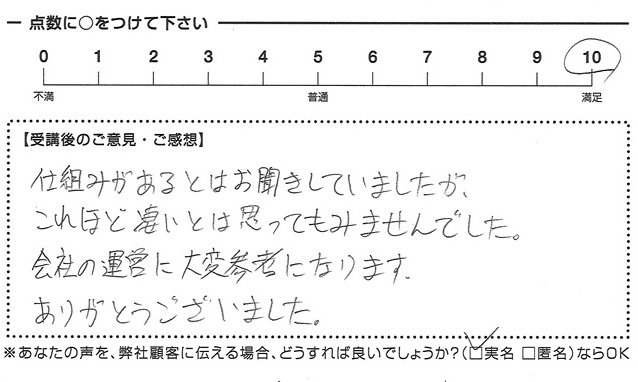 点数に○をつけて下さい
0 1 2 3 4 5 6 7 8 9 10
不満 普通 満足
【受講後のご意見・ご感想】
仕組みがあるとはお聞きしていましたが、
これほど凄いとは思ってもみませんでした。
会社の運営に大変参考になります。
ありがとうございました。
※あなたの声を、弊社顧客に伝える場合、どうすれば良いでしょうか?(☑実名 □匿名)ならOK